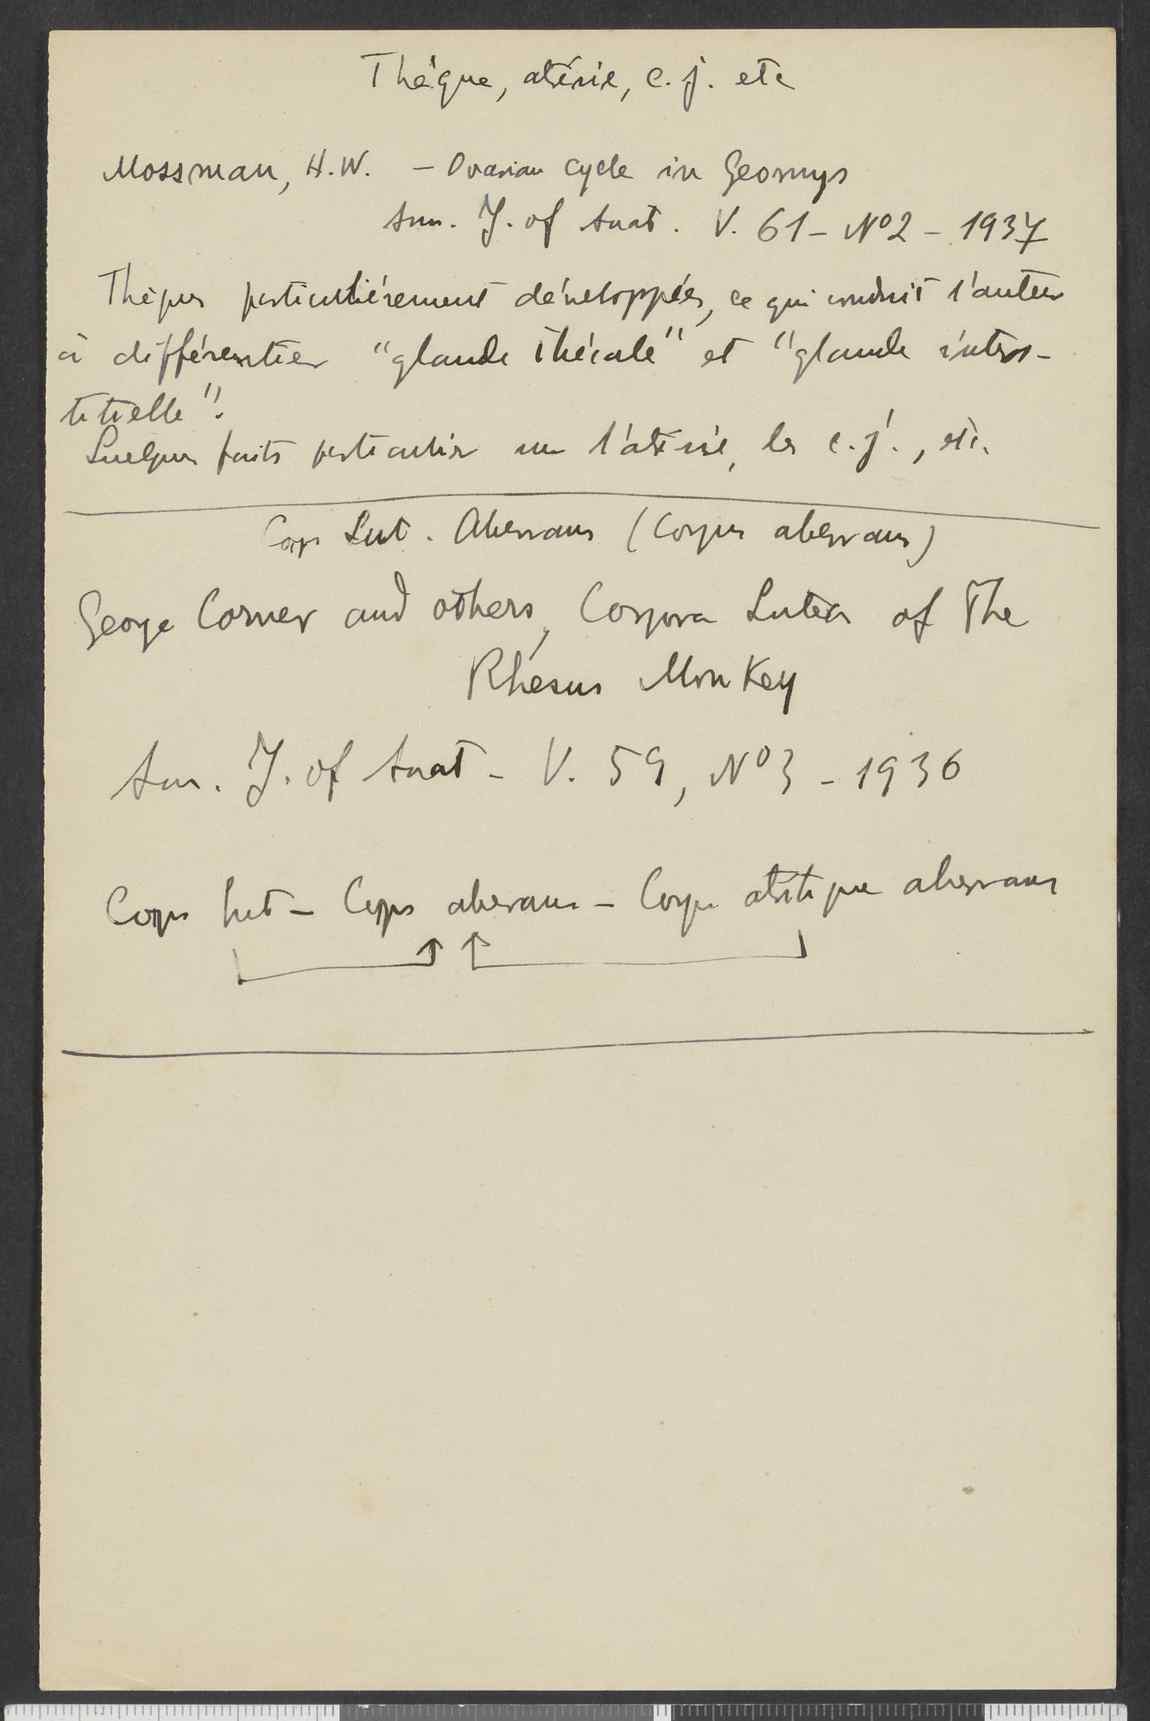 Thèque, atrésie, c. j. etc
Mossman, H.W. – Ovarian cycle in Geomys
Am. J. of Anat. V. 61 – Nº2 – 1937
Thèques particulièrement développées, ce qui conduit l'auteur
à différentier "glande thécale" et "glande inters-
titielle".
Quelques faits particuliers sur l'atrésie, les c. j., etc.
Corps Lut. Aberrans (Corpus aberrans)
George Corner and others, Corpora Lutea of The
Rhesus Monkey
Am. J. of Anat – V. 59, Nº3 – 1936
Corps lut – Corps aberrans – Corps atrétique aberrans